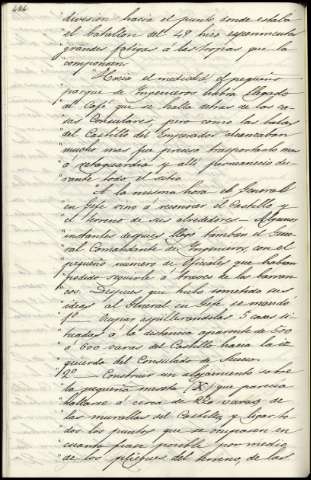 division hacia el punto donde estaba
el batallon del 49 mas
grandes fatigas á las tropas que la
componian.
Hacia el mediodia, el pequeño
parque de Ingenieros habia llegado
al Café que se halla detras de las ca-
sas Consulares, pero como las balas
del Castillo del Emperador alcanzaban
mucho mas fue preciso trasportarlo mas
á retaguardia y alli permaneció du-
rante todo el sitio.
A la misma hora el General
en Gefe vino á reconocer el Castillo y
el terreno de sus alrededores. Algunos
instantes despues llegó tambien el Gene-
ral Comandante de Ingenieros, con el
pequeño número de Oficiales que habian
podido seguirle á traves de los barran-
cos. Despues que hubo sometido sus
ideas al General en Gefe se mandó
1º Ocupar aspillerandolas 5 casas si-
tuadas á la distancia aparente de 500
ó 600 varas del Castillo hacia la iz-
quierda del Consulado de Suecia.
2º Construir un alojamiento sobre
la pequeña meseta (X) que parecia
hallarse á cerca de 250 varas de
las murallas del Castillo, y ligar to-
dos los puestos que se ocuparan en
cuanto fuese posible por medio
de los pliegues del terreno, de las